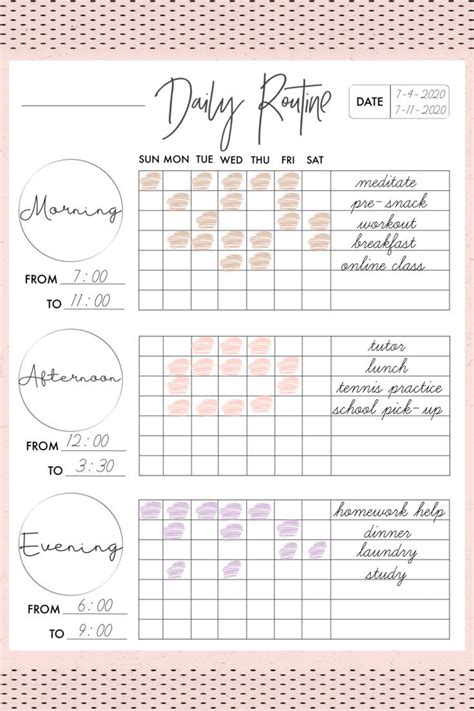 Daily Routine
DATE 7-4-2020
7-11-2020
SUN MON TUE WED THU FRI SAT
Morning
meditate
pre-snack
workout
breakfast
online class
FROM 7:00
TO 11:00
Afternoon
tutor
lunch
tennis practice
school pick-up
FROM 12:00
TO 3:30
Evening
homework help
dinner
laundry
study
FROM 6:00
TO 9:00